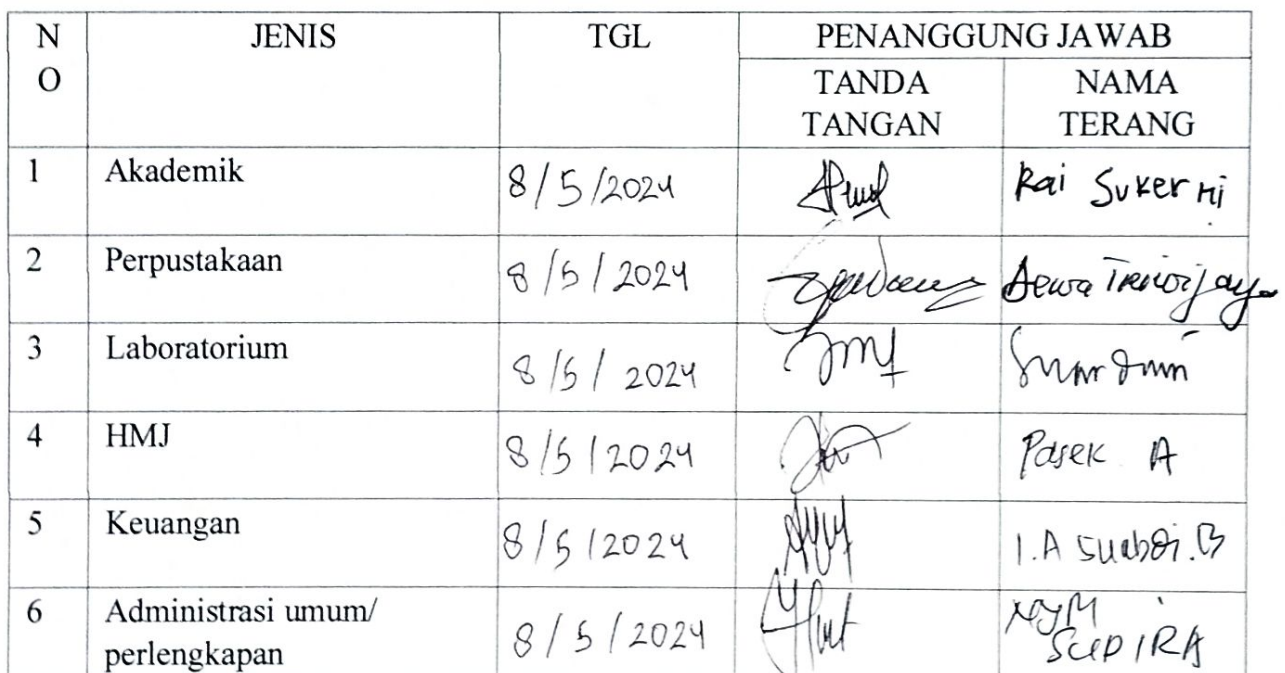 NO JENIS TGL PENANGGUNG JAWAB
TANDA TANGAN NAMA TERANG
1 Akademik 8/5/2024 Rai Sukerni
2 Perpustakaan 8/5/2024 Dewa Triwijaya
3 Laboratorium 8/5/2024
4 HMJ 8/5/2024 Pasek A
5 Keuangan 8/5/2024 I.A
6 Administrasi umum/ perlengkapan 8/5/2024 NYM SUPIRA